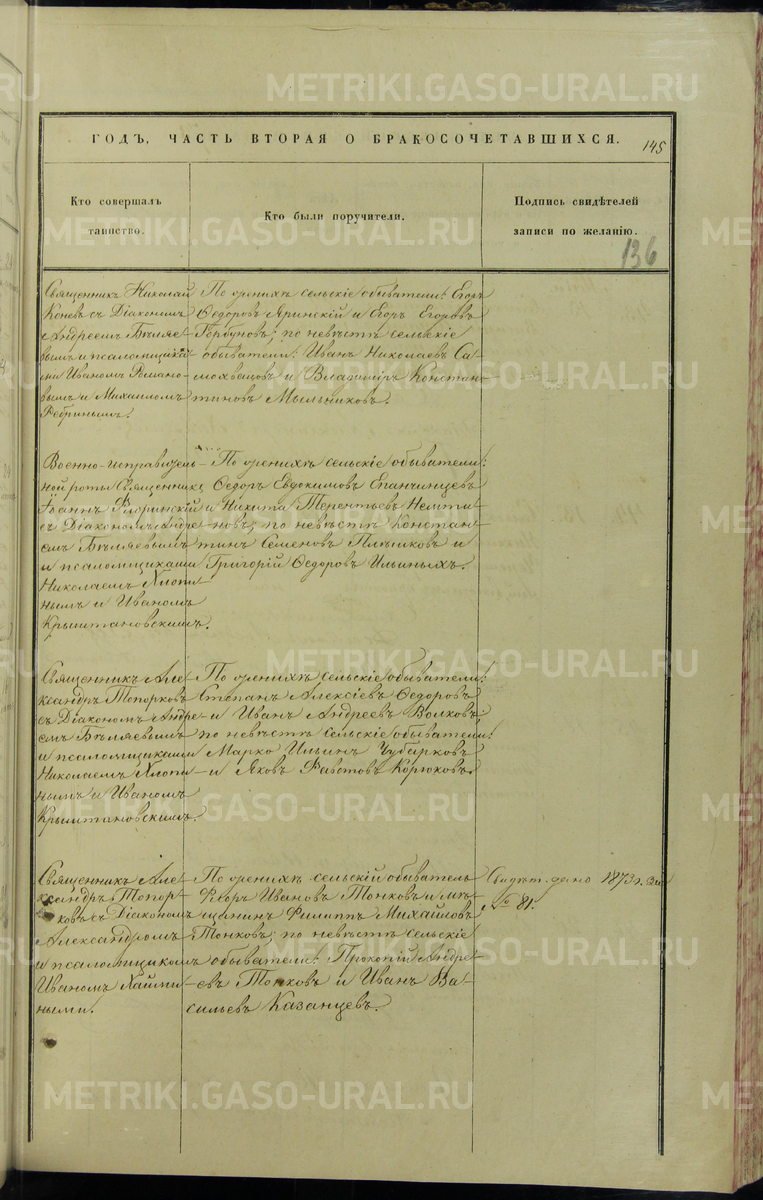 ГОДЪ, ЧАСТЬ ВТОРАЯ О БРАКОСОЧЕТАВШИХСЯ.
145
Кто совершалъ
таинство.
Кто были поручители.
Подпись свидѣтелей
записи по желанію.
136
Священникъ Николай
Коневъ съ Діакономъ
Андреемъ Бѣляе-
вымъ и псаломщика-
ми Иваномъ Романо-
вымъ и Михаиломъ
По женихѣ сельскіе обыватели: Егоръ
Ѳедоровъ Яринскій и Егоръ Егоровъ
Горбуновъ; по невѣстѣ сельскіе
обыватели: Иванъ Николаевъ Са-
мохваловъ и Владиміръ Констан-
тиновъ Мыльниковъ.
Военно-исправитель-
ной роты Священникъ
Іоаннъ Флоринскій
съ Діакономъ Андре-
емъ Бѣляевымъ
и псаломщиками
Николаемъ Хлопи-
нымъ и Иваномъ
Крыштановскимъ.
По женихѣ сельскіе обыватели:
Ѳедоръ Евдокимовъ Епанчинцевъ
и Никита Терентьевъ
по невѣстѣ Констан-
тинъ Семеновъ Плѣшковъ и
Григорій Ѳедоровъ Ильиныхъ.
Священникъ Але-
ксандръ Топорковъ
съ Діакономъ Андре-
емъ Бѣляевымъ
и псаломщиками
Николаемъ Хлопи-
нымъ и Иваномъ
Крыштановскимъ.
По женихѣ сельскіе обыватели:
Степанъ Алексіевъ Ѳедоровъ
и Иванъ Андреевъ Волковъ;
по невѣстѣ сельскіе обыватели:
Марко Ильинъ Чубарковъ
и Яковъ Фавстовъ Корюковъ.
Священникъ Але-
ксандръ Топор-
ковъ съ Діакономъ
Александромъ
и псаломщикомъ
Иваномъ
По женихѣ сельскій обыватель
Ивановъ Тонковъ и мѣ-
щанинъ Филиппъ Михайловъ
Тонковъ; по невѣстѣ сельскіе
обыватели: Прокопій Андре-
евъ Тонковъ и Иванъ Ва-
сильевъ Казанцевъ.
Свидѣт. дано 1873 г. за
№ 81.
METRIKI.GASO-URAL.RU